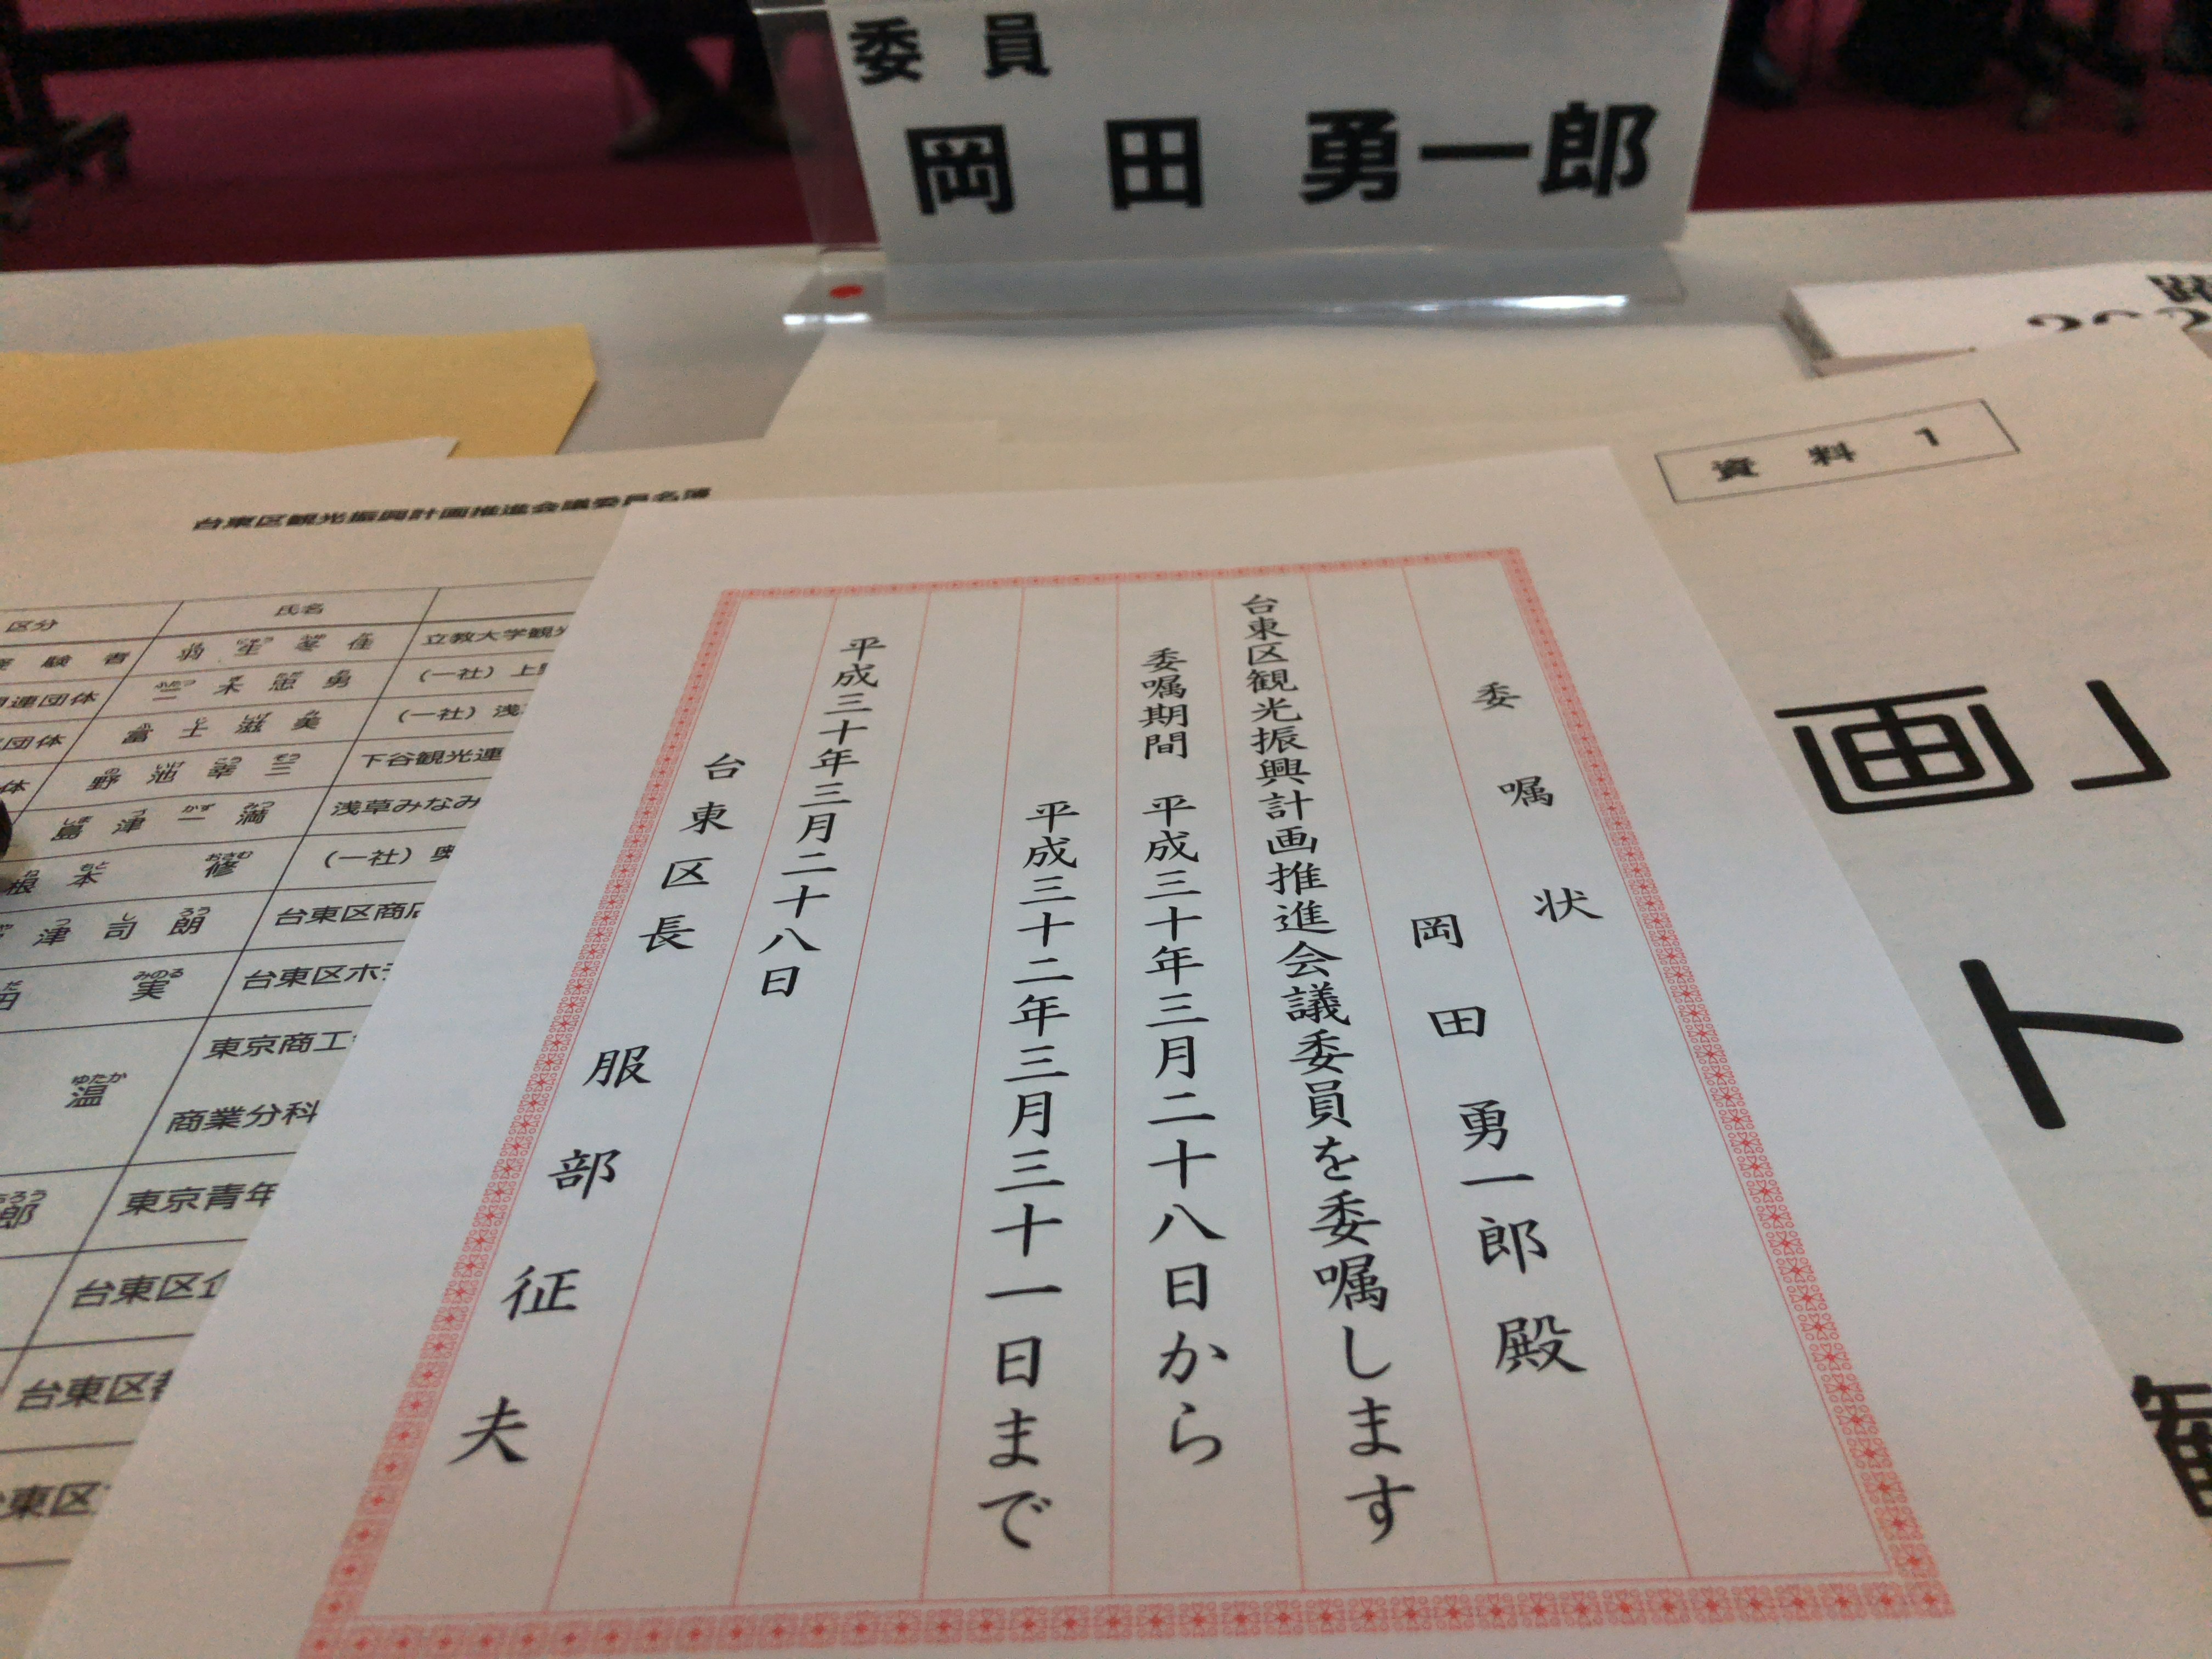 委員
岡田 勇一郎
資料 1
画」
ト
委嘱状
岡田勇一郎殿
台東区観光振興計画推進会議委員を委嘱します
委嘱期間 平成三十年三月二十八日から
平成三十二年三月三十一日まで
平成三十年三月二十八日
台東区長 服部征夫
台東区観光振興計画推進会議委員名簿
区分 氏名
験者 立教大学観光
連団体 二木忠勇 (一社)上野
団体 冨士滋美 (一社)浅
体 野池幸三 下谷観光連
島津一満 浅草みなみ
根本修 (一社)奥
津司朗 台東区商店
田実 みのる 台東区ホテ
温 ゆたか 東京商工
商業分科
郎 東京青年
台東区
台東区
東区